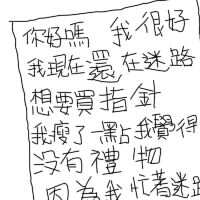 你好嗎 我很好
我現在還在迷路
想要買指針
我瘦了一點我覺得
沒有禮物
因為我忙著迷路